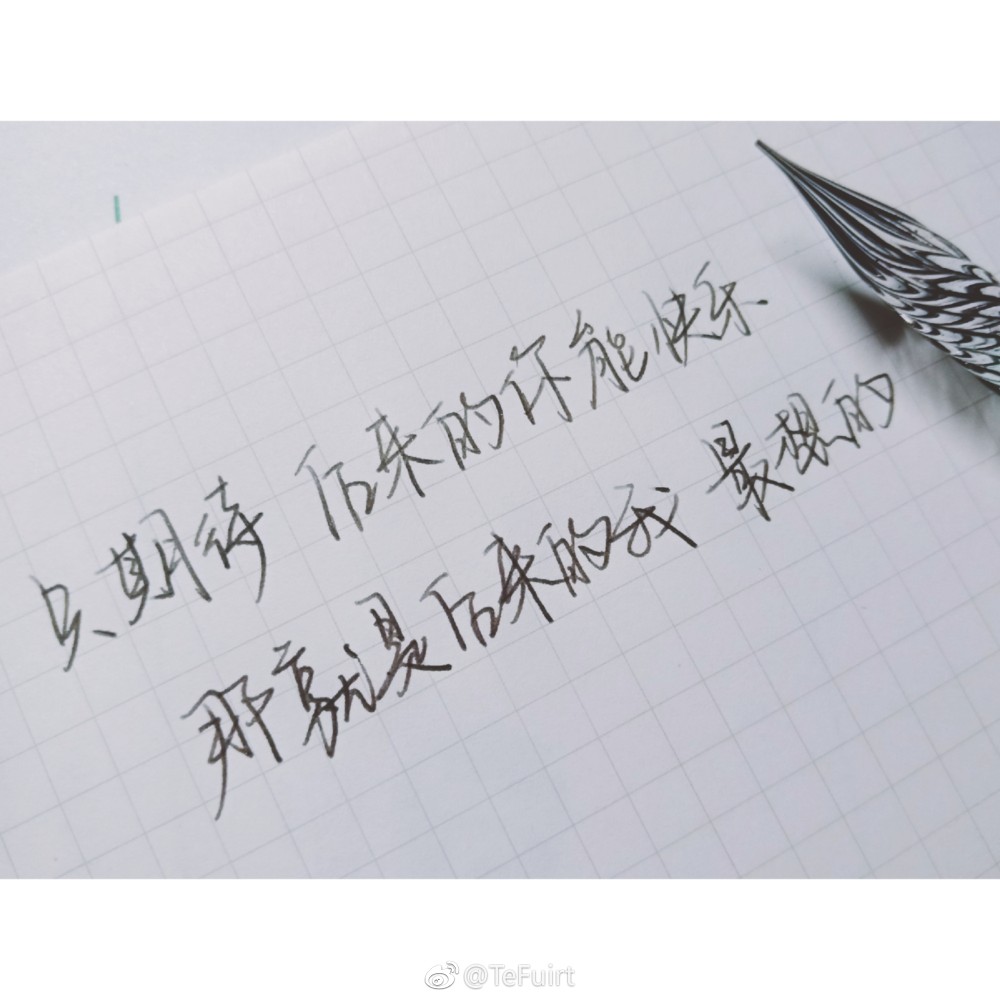 只期待 后来的你能快乐
那就是后来的我 最想的
@TeFuirt